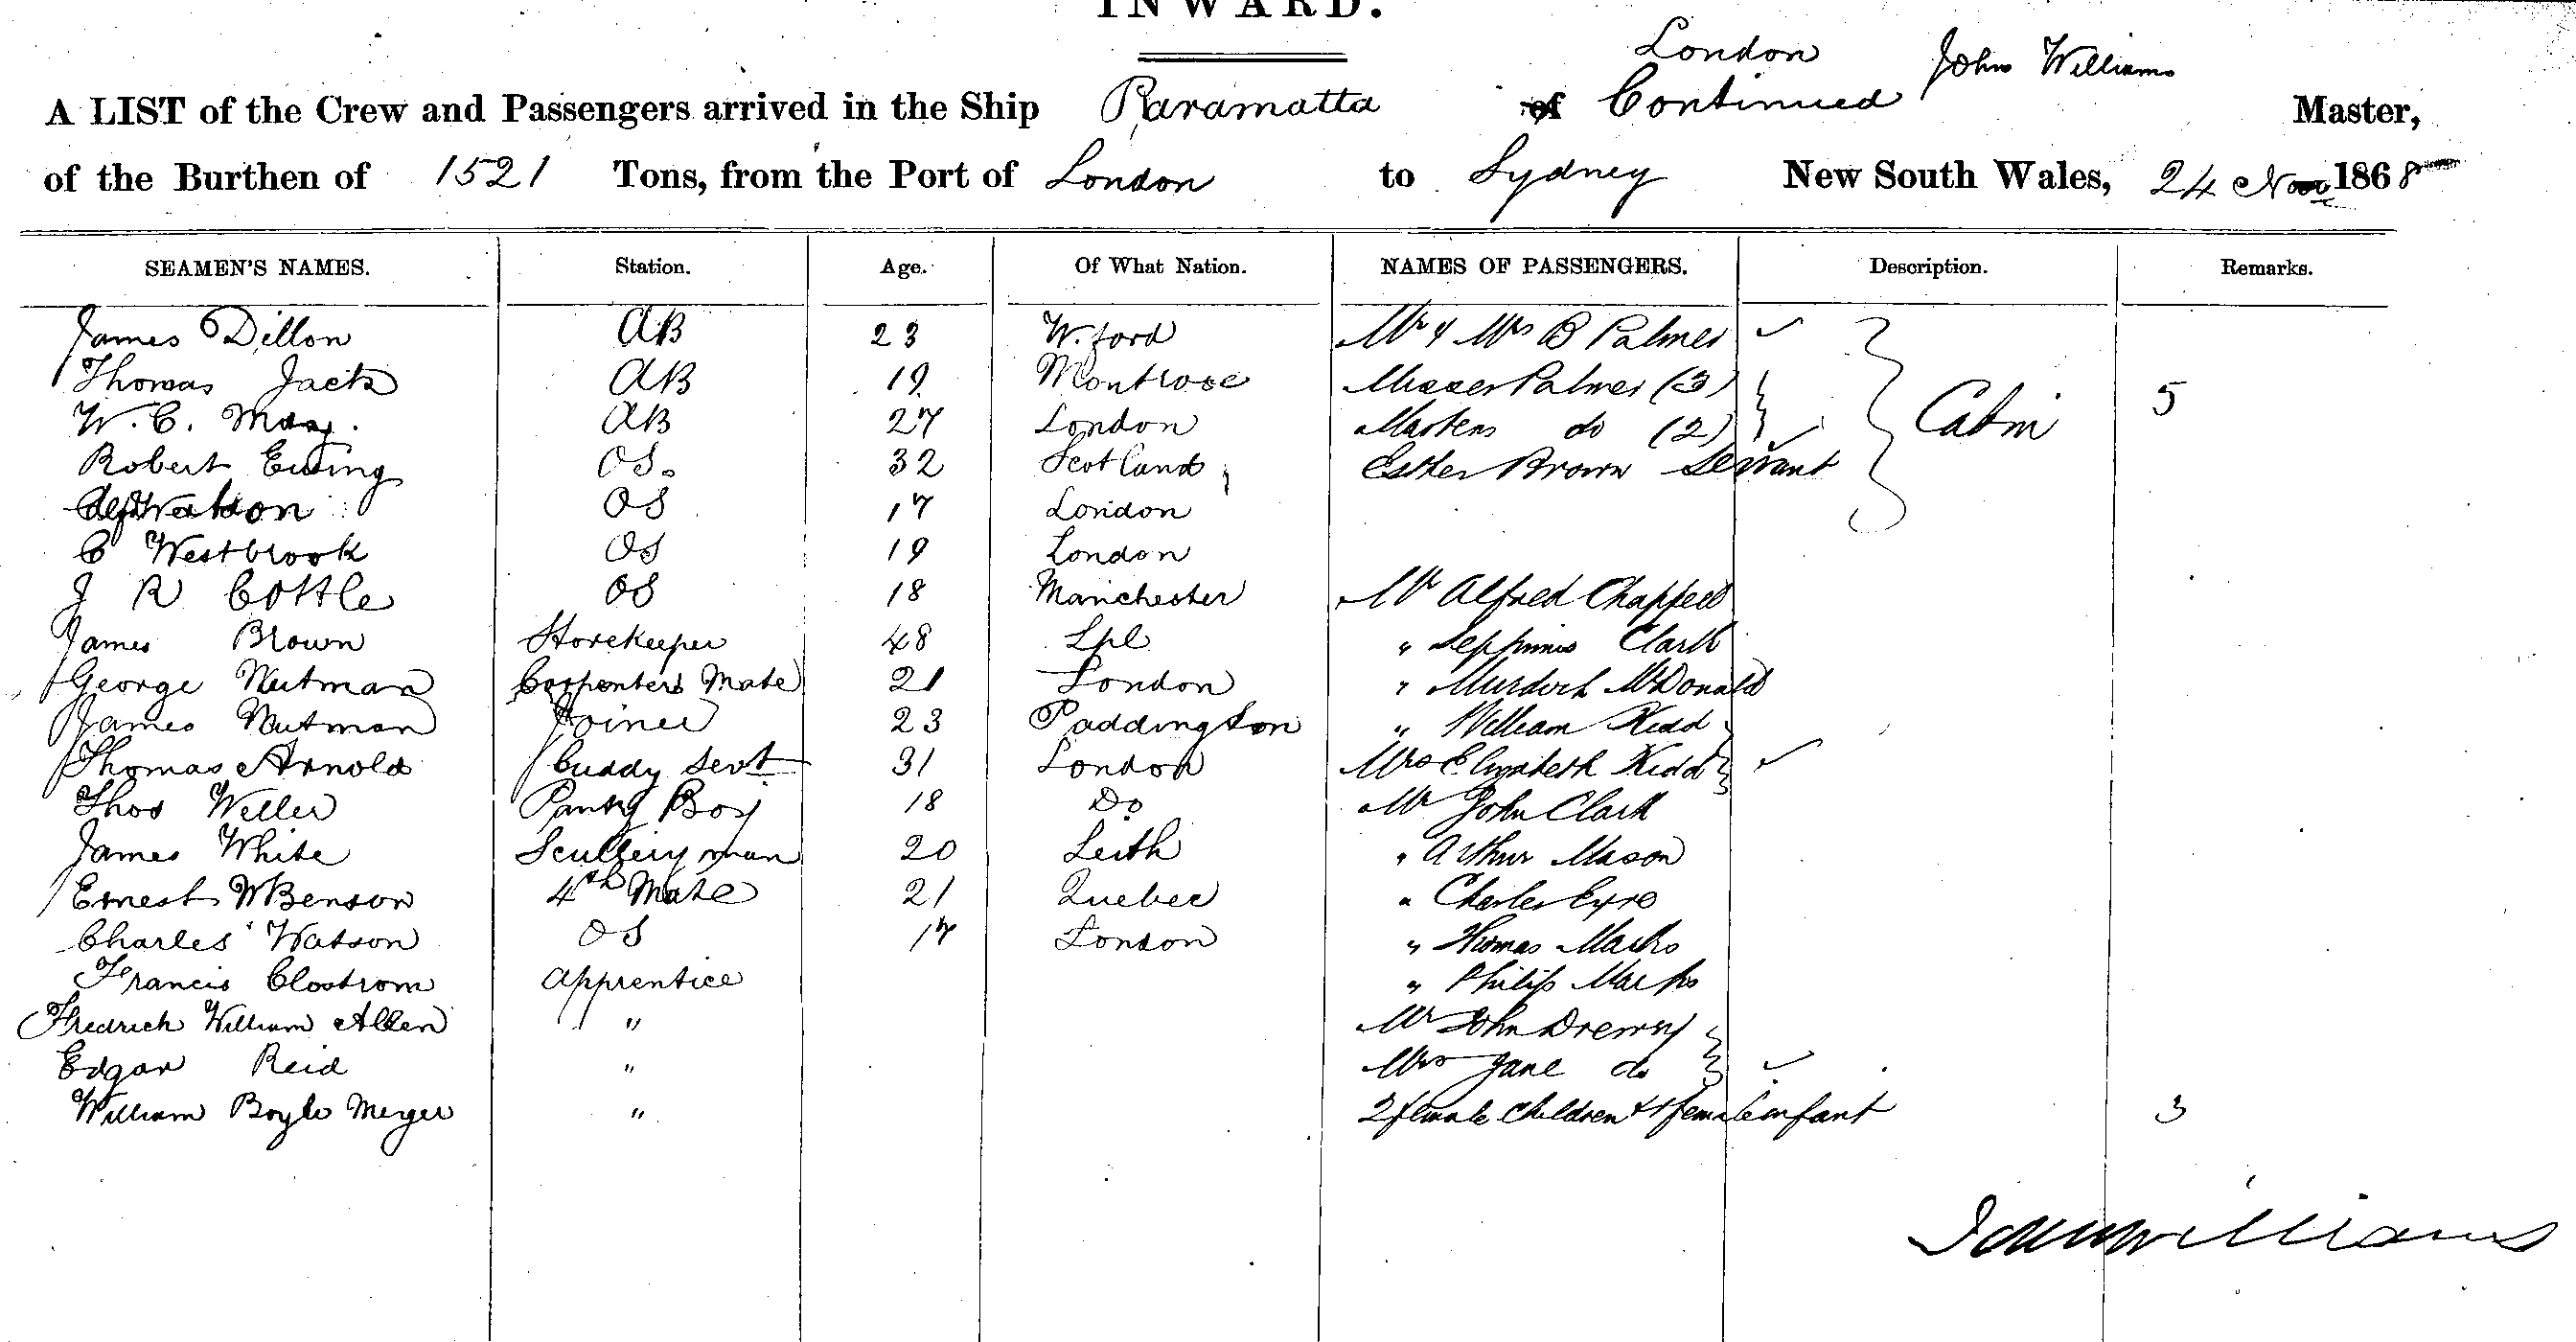 INWARD.
London
John Williams
A LIST of the Crew and Passengers arrived in the Ship Paramatta of Continued Master,
of the Burthen of 1521 Tons, from the Port of London to Sydney New South Wales, 24 Nov 1868
SEAMEN'S NAMES. Station. Age. Of What Nation. NAMES OF PASSENGERS. Description. Remarks.
James Dillon AB 23 W.ford Mr & Mrs B Palmer
Thomas Jack AB 19 Montrose Misses Palmer (3)
W. C. May. AB 27 London Masters do (2) Cabin 5
Robert Ewing OS. 32 Scotland Esther Brown Servant
Watson OS 17 London
C Westbrook OS 19 London
J R Cottle OS 18 Manchester Mr Alfred Chappell
James Brown Storekeeper 48 Lpl " Septimus Clark
George Nutman Carpenters Mate 21 London " Murdoch McDonald
James Nutman Joiner 23 Paddington " William Kidd
Thomas Arnold Cuddy Servt 31 London Mrs Elizabeth Kidd
Thos Weller Pantry Boy 18 Do Mr John Clark
James White Scullery man 20 Leith " Arthur Mason
Ernest W Benson 4th Mate 21 Quebec " Charles Eyre
Charles Watson OS 17 London " Thomas Marks
Francis Clostrom Apprentice " Philip Marks
Fredrich William Allen " Mr John Drewry
Edgar Reid " Mrs Jane do
William Boyle Meyer " 2 female children & 1 female infant 3
John Williams